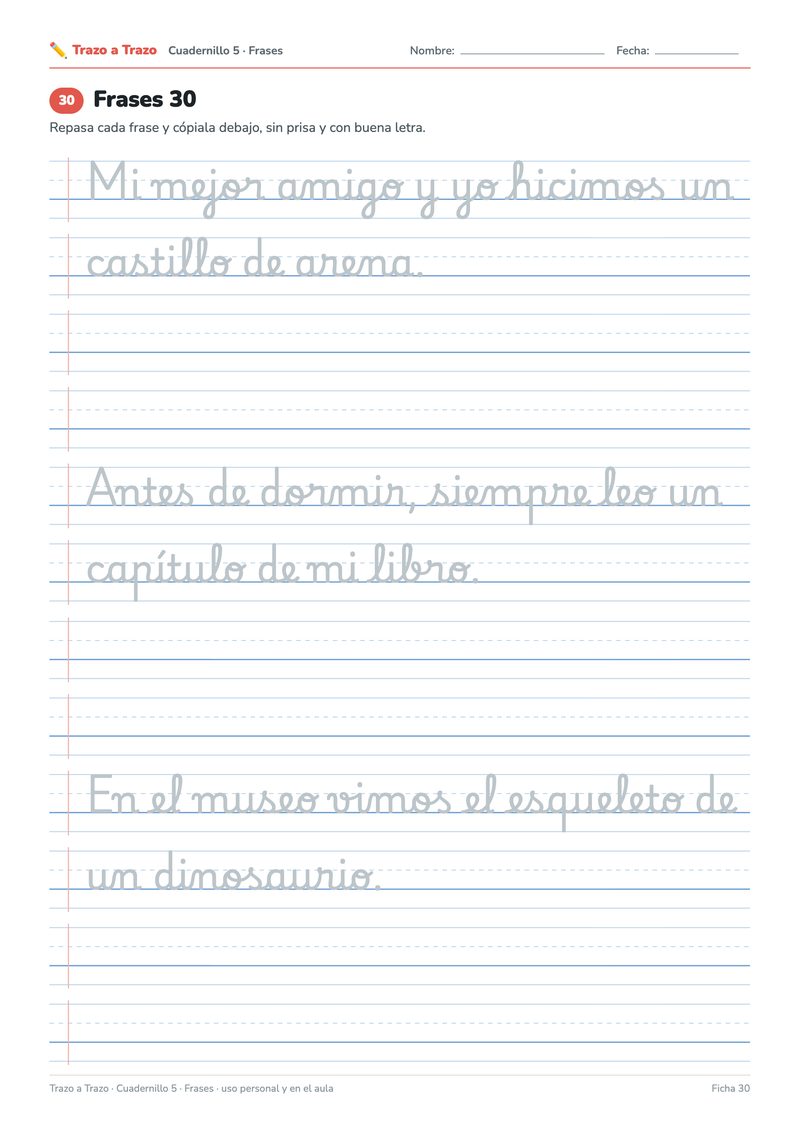 Trazo a Trazo Cuadernillo 5 · Frases Nombre: Fecha:
30 Frases 30
Repasa cada frase y cópiala debajo, sin prisa y con buena letra.
Mi mejor amigo y yo hicimos un
castillo de arena.
Antes de dormir, siempre leo un
capítulo de mi libro.
En el museo vimos el esqueleto de
un dinosaurio.
Trazo a Trazo · Cuadernillo 5 · Frases · uso personal y en el aula Ficha 30